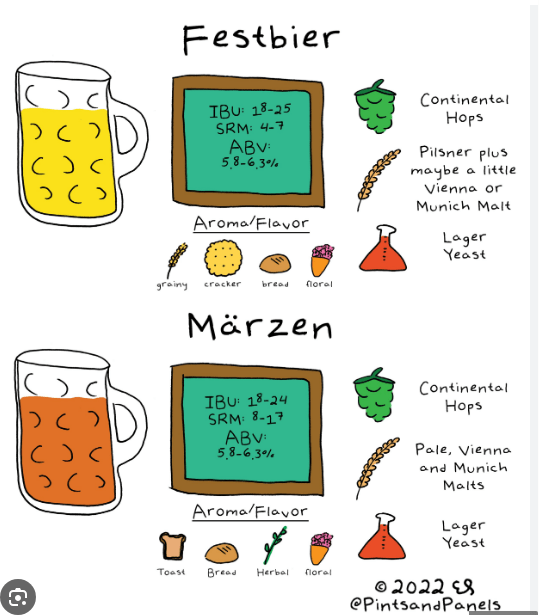 Festbier
IBU: 18-25
SRM: 4-7
ABV:
5.8-6.3%
Continental
Hops
Pilsner plus
maybe a little
Vienna or
Munich Malt
Lager
Yeast
Aroma/Flavor
grainy cracker bread floral
Märzen
IBU: 18-24
SRM: 8-17
ABV:
5.8-6.3%
Continental
Hops
Pale, Vienna
and Munich
Malts
Lager
Yeast
Aroma/Flavor
Toast Bread Herbal floral
© 2022 ES
@PintsandPanels